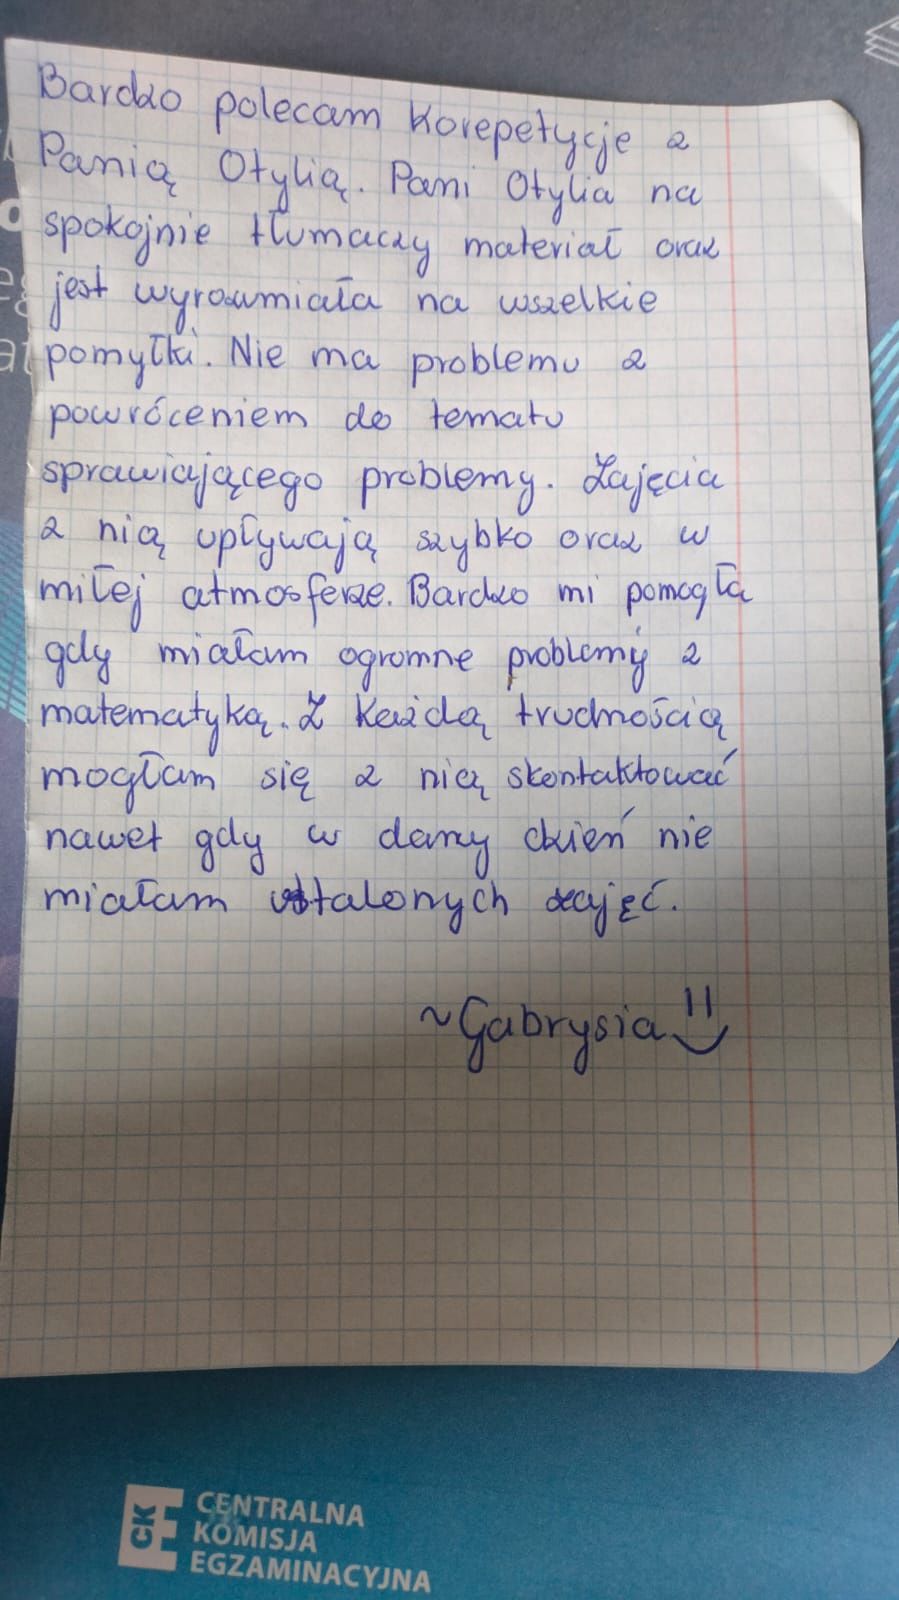 Bardzo polecam korepetycje z
Panią Otylią. Pani Otylia na
spokojnie tłumaczy materiał oraz
jest wyrozumiała na wszelkie
pomyłki. Nie ma problemu z
powróceniem do tematu
sprawiającego problemy. Zajęcia
z nią upływają szybko oraz w
miłej atmosferze. Bardzo mi pomogła
gdy miałam ogromne problemy z
matematyką. Z każdą trudnością
mogłam się z nią skontaktować
nawet gdy w dany dzień nie
miałam ustalonych zajęć.
~Gabrysia
CKE CENTRALNA
KOMISJA
EGZAMINACYJNA